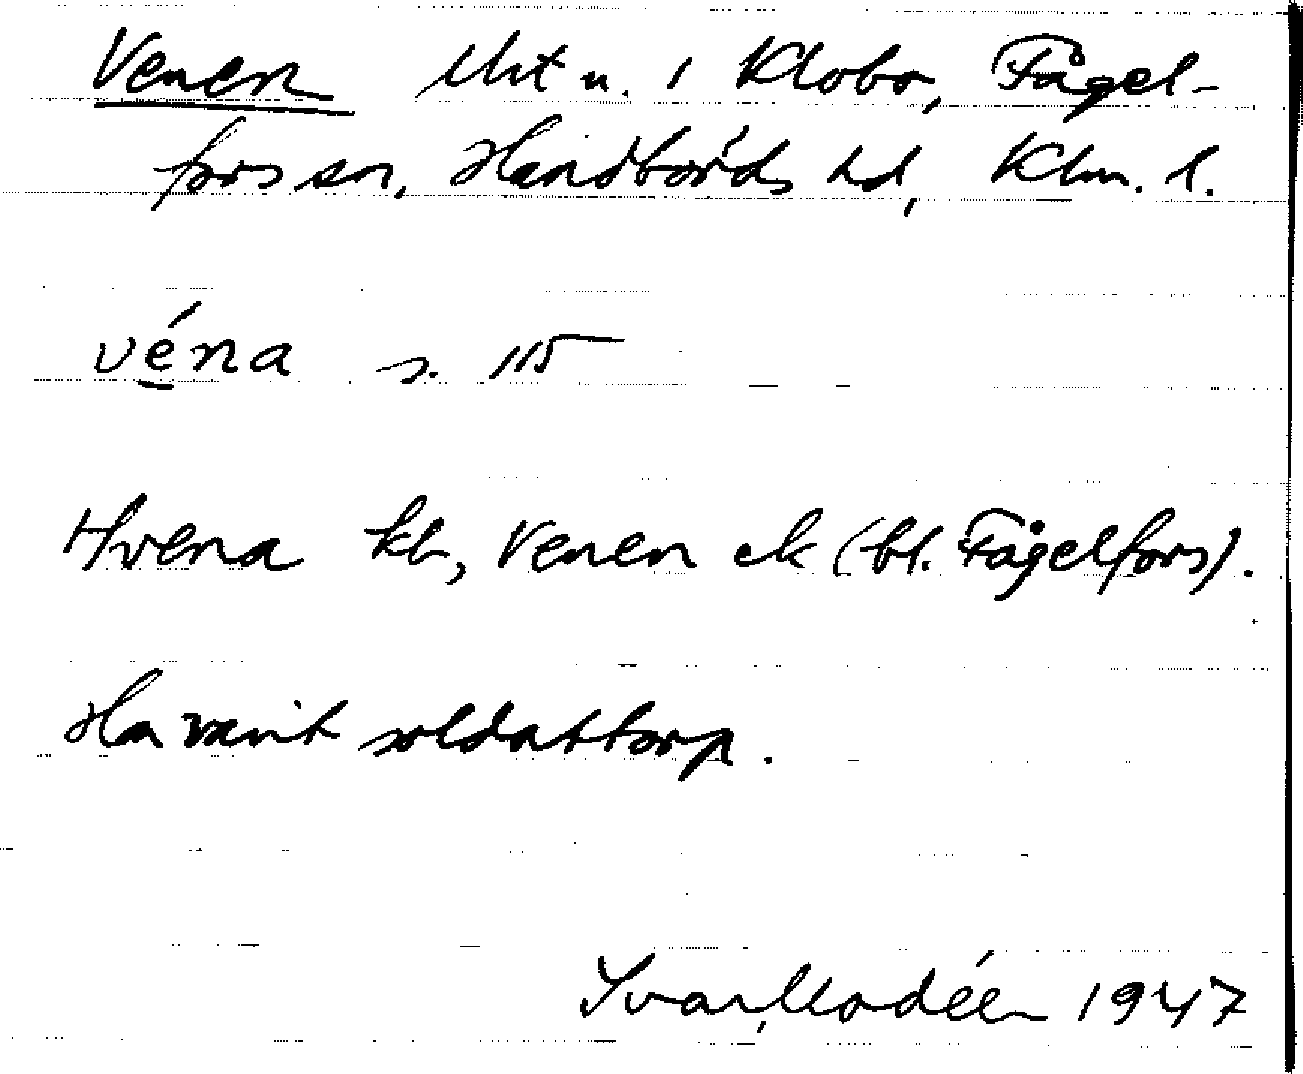 Venen lht u. i Klobo, Fågel-
fors sn, Handbörds hd, Klm. l.
véna s. 115
Hvena kb, Venen ek (bl. Fågelfors).
Har varit soldattorp.
Ivar Modéer 1947